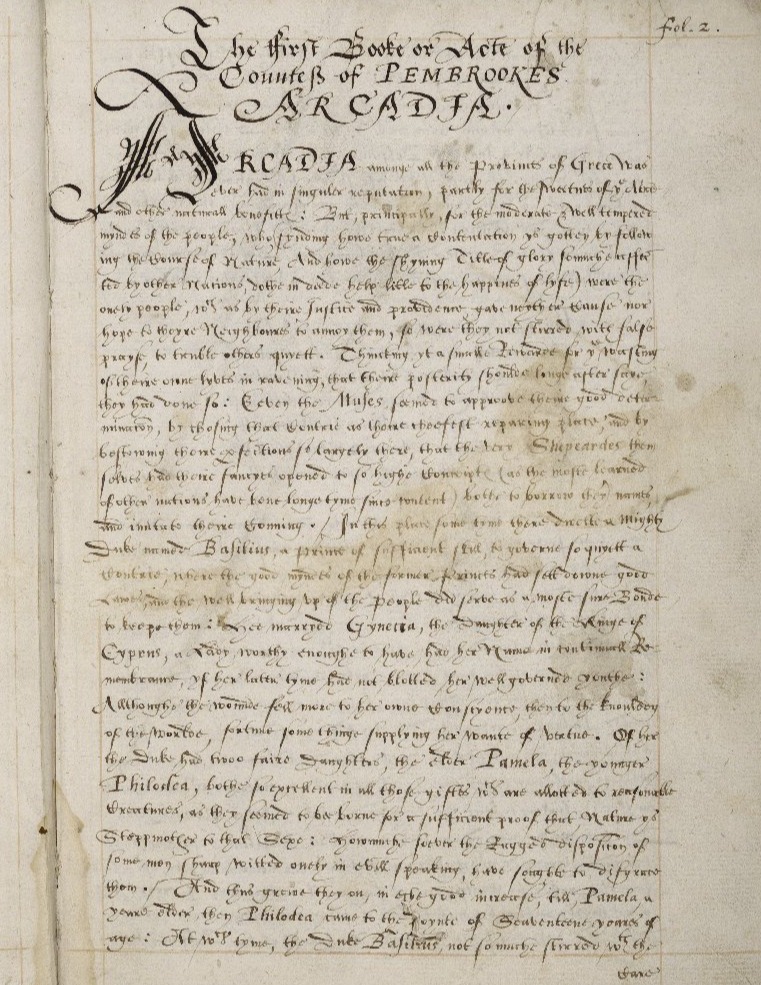 Fol. 2.
The First Booke or Acte of the
Countess of PEMBROOKES
ARCADIA.
ARCADIA amonge all the Provinces of Grece was
ever had in singuler reputation, partly for the sweetnes of yͤ Aire
and other naturall benefittes: But, principally, for the moderate & well tempered
myndes of the people, who, fynding howe true a Contentation ys gotten by follow
ing the Course of Nature, And howe the shyning Title of glory somuche affec
ted by other Nations, dothe in deede help litle to the happines of lyfe) were the
onely people, wᶜʰ as by theire Justice and providence gave neyther Cause nor
hope to theyre Neighboures to annoy them, so were they not stirred with false
prayse, to truble others quyett. Thincking yt a smalle Rewarde for yͤ wasting
of theire owne lyves in ravening, that theire posterity shoulde longe after saye,
they had done so: Eeven the Muses seemed to approove theire good deter
minacon, by chosing that Contrie as theire cheefest reparing place, and by
bestowing theire perfections so largely there, that the very Shepeardes them
selves had theire fancyes opened to so highe Conceiptes (as the moste learned
of other nations have bene longe tyme since content) bothe to borrow theyr names,
and imitate theire Conning. / In this place some tyme there dwelte a Mighty
Duke named Basilius, a prince of sufficient skill, to governe so quyett a
Contrie, where the good myndes of the former Princes had sett downe good
Lawes, and the well bringing up of the people did serve as a moste sure Bonde
to keepe them: Hee marryed Gynecia, the Daughter of the Kinge of
Cyprus, a Lady worthy enoughe to have had her Name in continuall Re-
membrance, yf her latter tyme had not blotted her well governed youthe:
Allthoughe the wounde fell more to her owne Conscyence, then to the knouledg
of the worlde, fortune some thinge supplying her wante of vertue. Of her
the Duke had twoo faire Daughters, the elder Pamela, the younger
Philoclea, bothe so excellent in all those giftes wᶜʰ are allotted to reasonable
Creatures, as they seemed to bee borne for a sufficient proof that Nature ys no
Steppmother to that Sexe: Howmuche soever the Rugged disposition of
some men sharp witted onely in evill speaking, have soughte to disgrace
them. / And thus grewe they on, in eche good increase, till Pamela, a
yeare elder, then Philoclea came to the poynte of Seaventeene yeares of
age: At wᶜʰ tyme, the Duke Basilius, not somuche stirred wᵗʰ the
Care